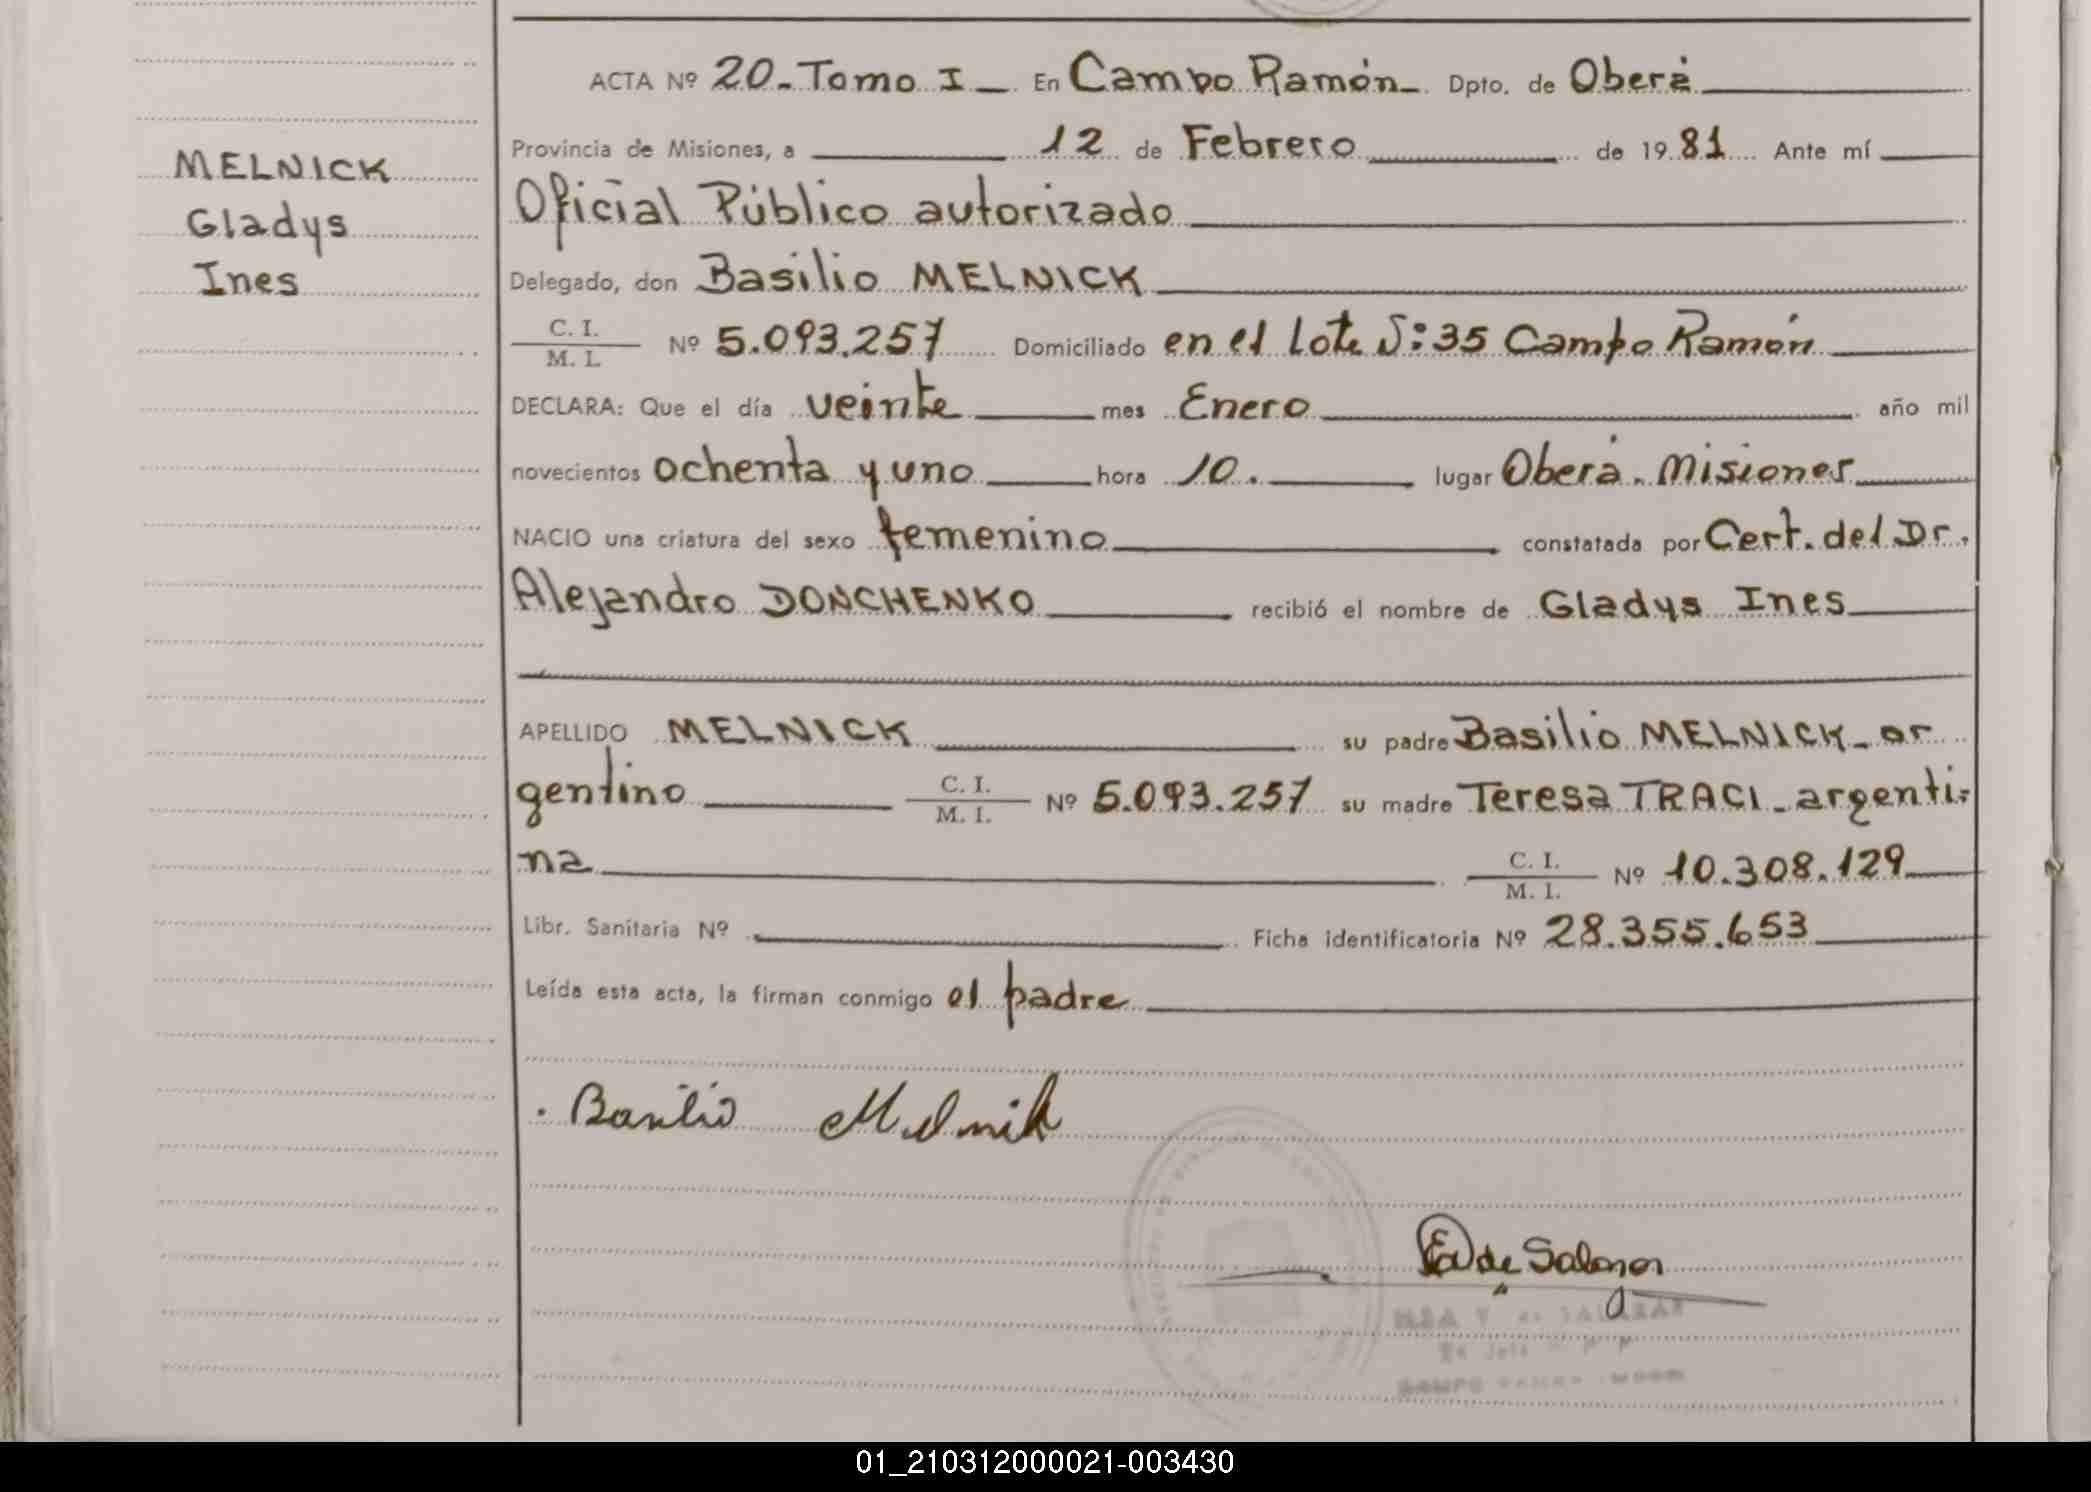 MELNICK
Gladys
Ines
ACTA Nº 20 - Tomo I - En Campo Ramón - Dpto. de Oberá
Provincia de Misiones, a 12 de Febrero de 1981 Ante mí
Oficial Público autorizado
Delegado, don Basilio MELNICK
C. I. / M. I. Nº 5.093.257 Domiciliado en el Lote S:35 Campo Ramón
DECLARA: Que el día veinte mes Enero año mil
novecientos ochenta y uno hora 10. lugar Oberá. Misiones
NACIO una criatura del sexo femenino constatada por Cert. del Dr.
Alejandro DONCHENKO recibió el nombre de Gladys Ines
APELLIDO MELNICK su padre Basilio MELNICK - ar
gentino C. I. / M. I. Nº 5.093.257 su madre Teresa TRACI - argenti-
na C. I. / M. I. Nº 10.308.129
Libr. Sanitaria Nº Ficha identificatoria Nº 28.355.653
Leída esta acta, la firman conmigo el padre
Basilio Melnik
de Salazar
01_210312000021-003430